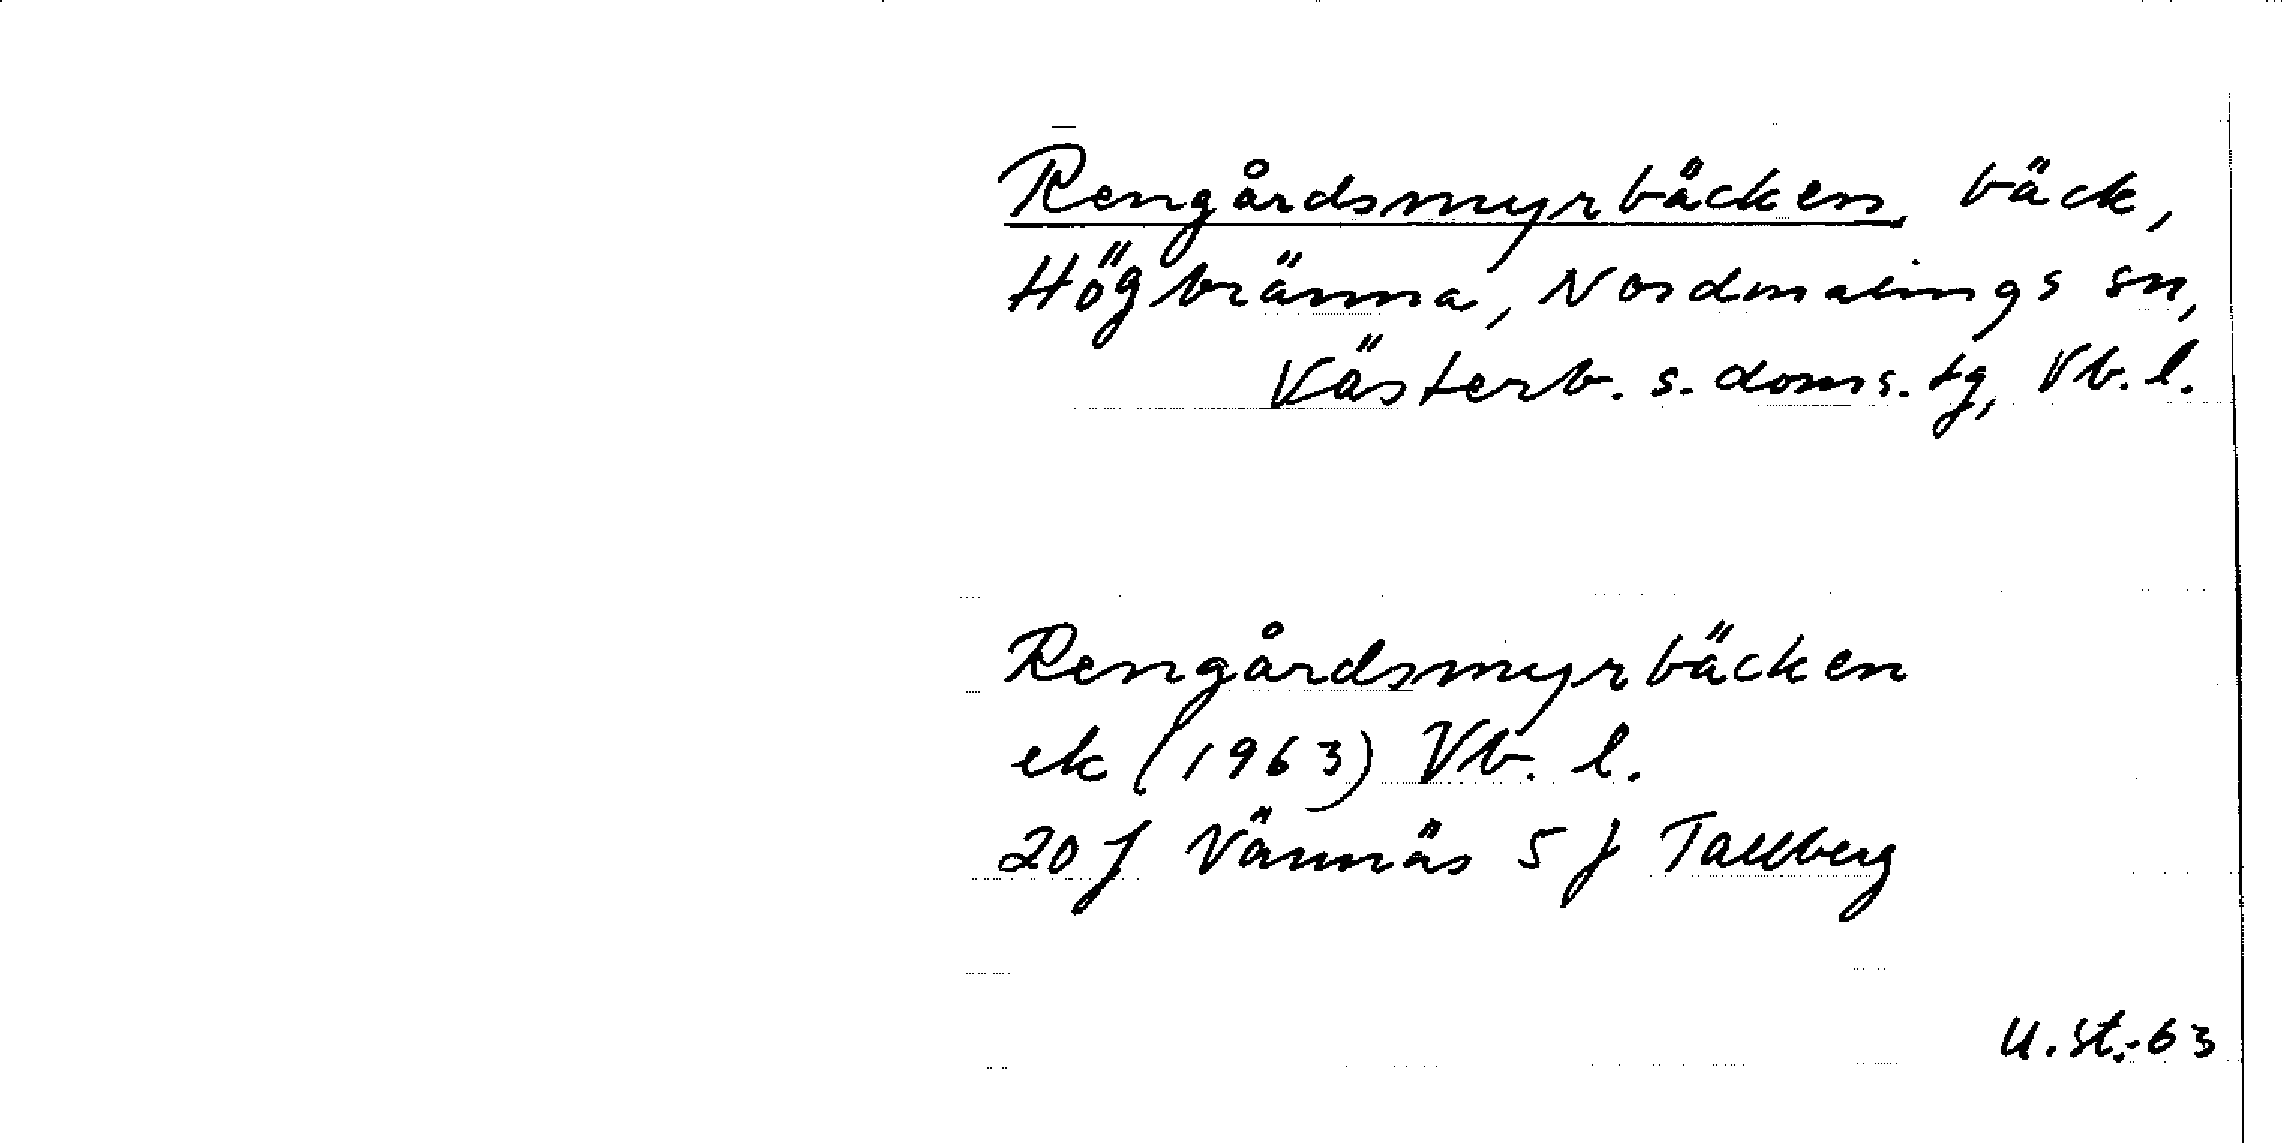 Rengårdsmyrbäcken, bäck,
Högbränna, Nordmalings sn,
Västerb. s. doms. tg, Vb. l.
Rengårdsmyrbäcken
ek (1963) Vb. l.
20 J Vännäs 5 f Tallberg
U. St. -63